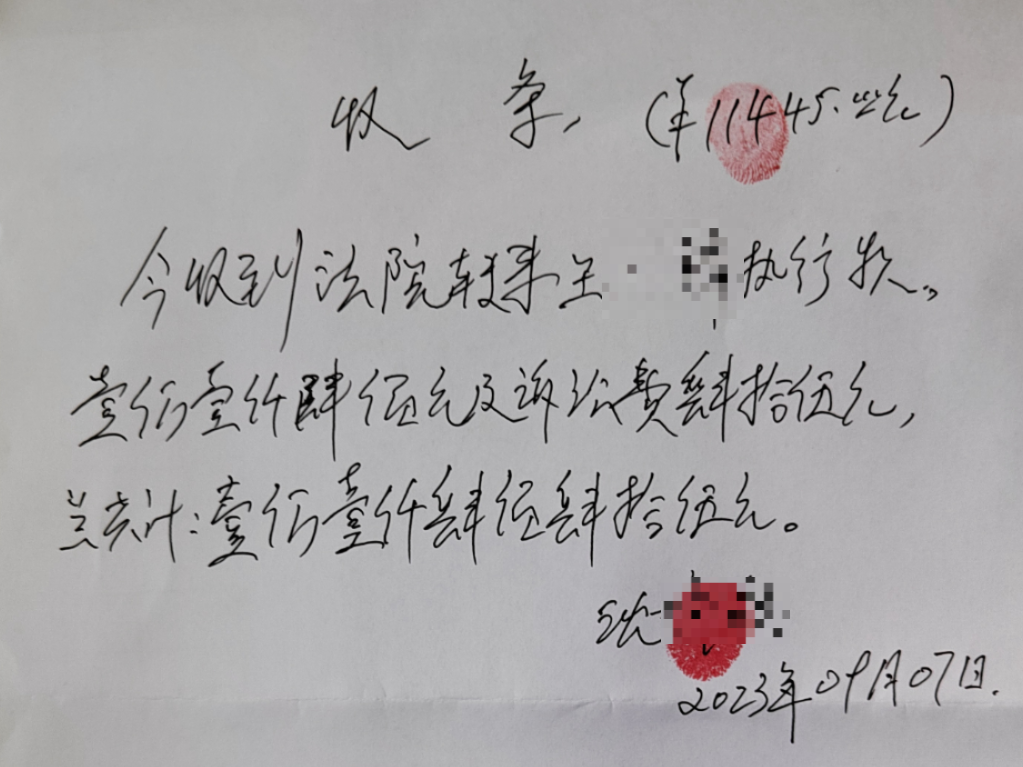 收条，（￥11445.00元）
今收到法院转来王 执行款。
壹万壹仟肆佰元及诉讼费肆拾伍元，
共计：壹万壹仟肆佰肆拾伍元。
沈
2023年09月07日.